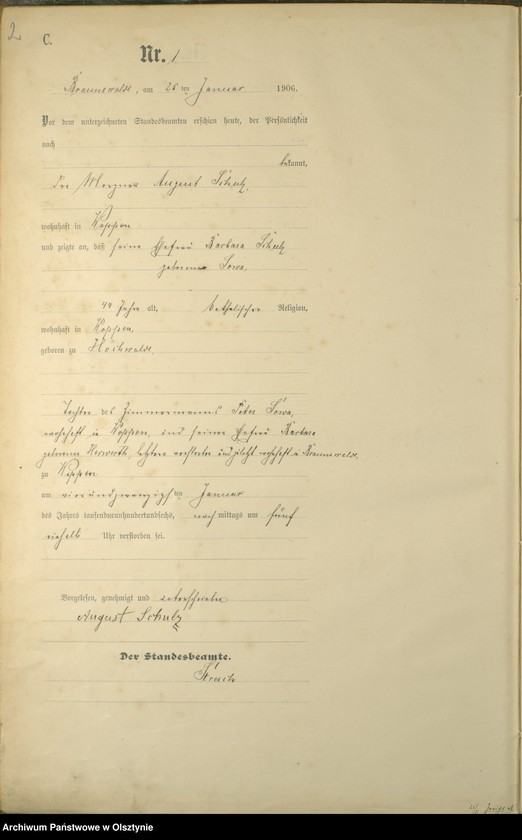 2
C.
Nr. 1
Braunswalde, am 26 ten Januar 1906.
Vor dem unterzeichneten Standesbeamten erschien heute, der Persönlichkeit
nach
bekannt,
der August Schulz,
wohnhaft in Woppen
und zeigte an, daß seine Ehefrau Barbara Schulz
geborene Sowa,
44 Jahre alt, katholischer Religion,
wohnhaft in Woppen,
geboren zu Hochwalde,
Tochter des Zimmermanns Peter Sowa,
wohnhaft in Woppen, und seiner Ehefrau Barbara
geborenen letztere verstorben und zuletzt wohnhaft in Braunswalde,
zu Woppen
am vierundzwanzigsten Januar
des Jahres tausendneunhundertundsechs, nachmittags um fünf
einhalb Uhr verstorben sei.
Vorgelesen, genehmigt und unterschrieben
August Schulz
Der Standesbeamte.
Archiwum Państwowe w Olsztynie